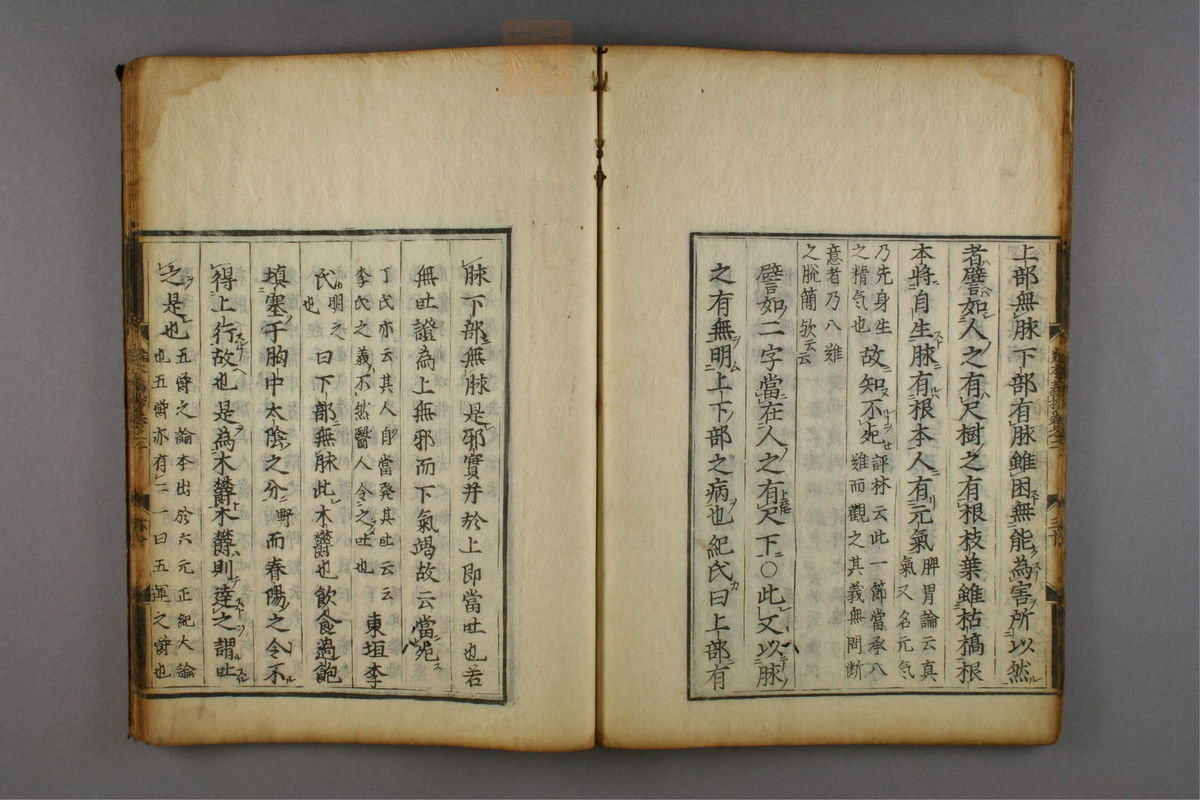 上部無脉下部有脉雖困無能為害所以然
者譬如人之有尺樹之有根枝葉雖枯槁根
本將自生脉有根本人有元氣脾胃論云真
氣又名元気
乃先身生
之精气也故知不死評林云此一節當承八
難而觀之其義無問断
意者乃八難
之脫簡欤云云
譬如二字當在人之有尺下○此又以脉
之有無明上下部之病也紀氏曰上部有
脉下部無脉是邪實并於上即當吐也若
無吐證為上無邪而下氣竭故云當死
丁氏亦云其人自當発其吐云云
李氏之義不然醫人令之吐也東垣李
氏明之
也曰下部無脉此木欝也飲食過飽
填塞于胸中太陰之分野而春陽之令不
得上行故也是為木欝木欝則達之謂吐
之是也五欝之論本出於六元正紀大論
也五欝亦有二一曰五運之欝也